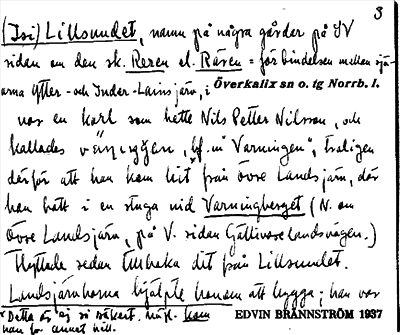 3
(Isi) Lillsundet, namn på några gårder på SV
sidan om den sk. Reren el. Råren = förbindelsen mellan sjö-
arna Ytter- och Inder-Lainsjärv, i Överkalix sn o. tg Norrb. l.
var en karl som hette Nils Petter Nilsson, och
kallades "Varningen", troligen
därför att han kom hit från övre Landsjärv, där
han bott i en stuga vid Varningberget (N. om
Övre Landsjärv, på V. sidan Gällivare landsvägen.)
Flyttade sedan tillbaka dit från Lillsundet.
Landsjärvborna hjälpte honom att bygga; han var
EDVIN BRÄNNSTRÖM 1937
x Detta är ej så säkert. kom
han för annat hit.